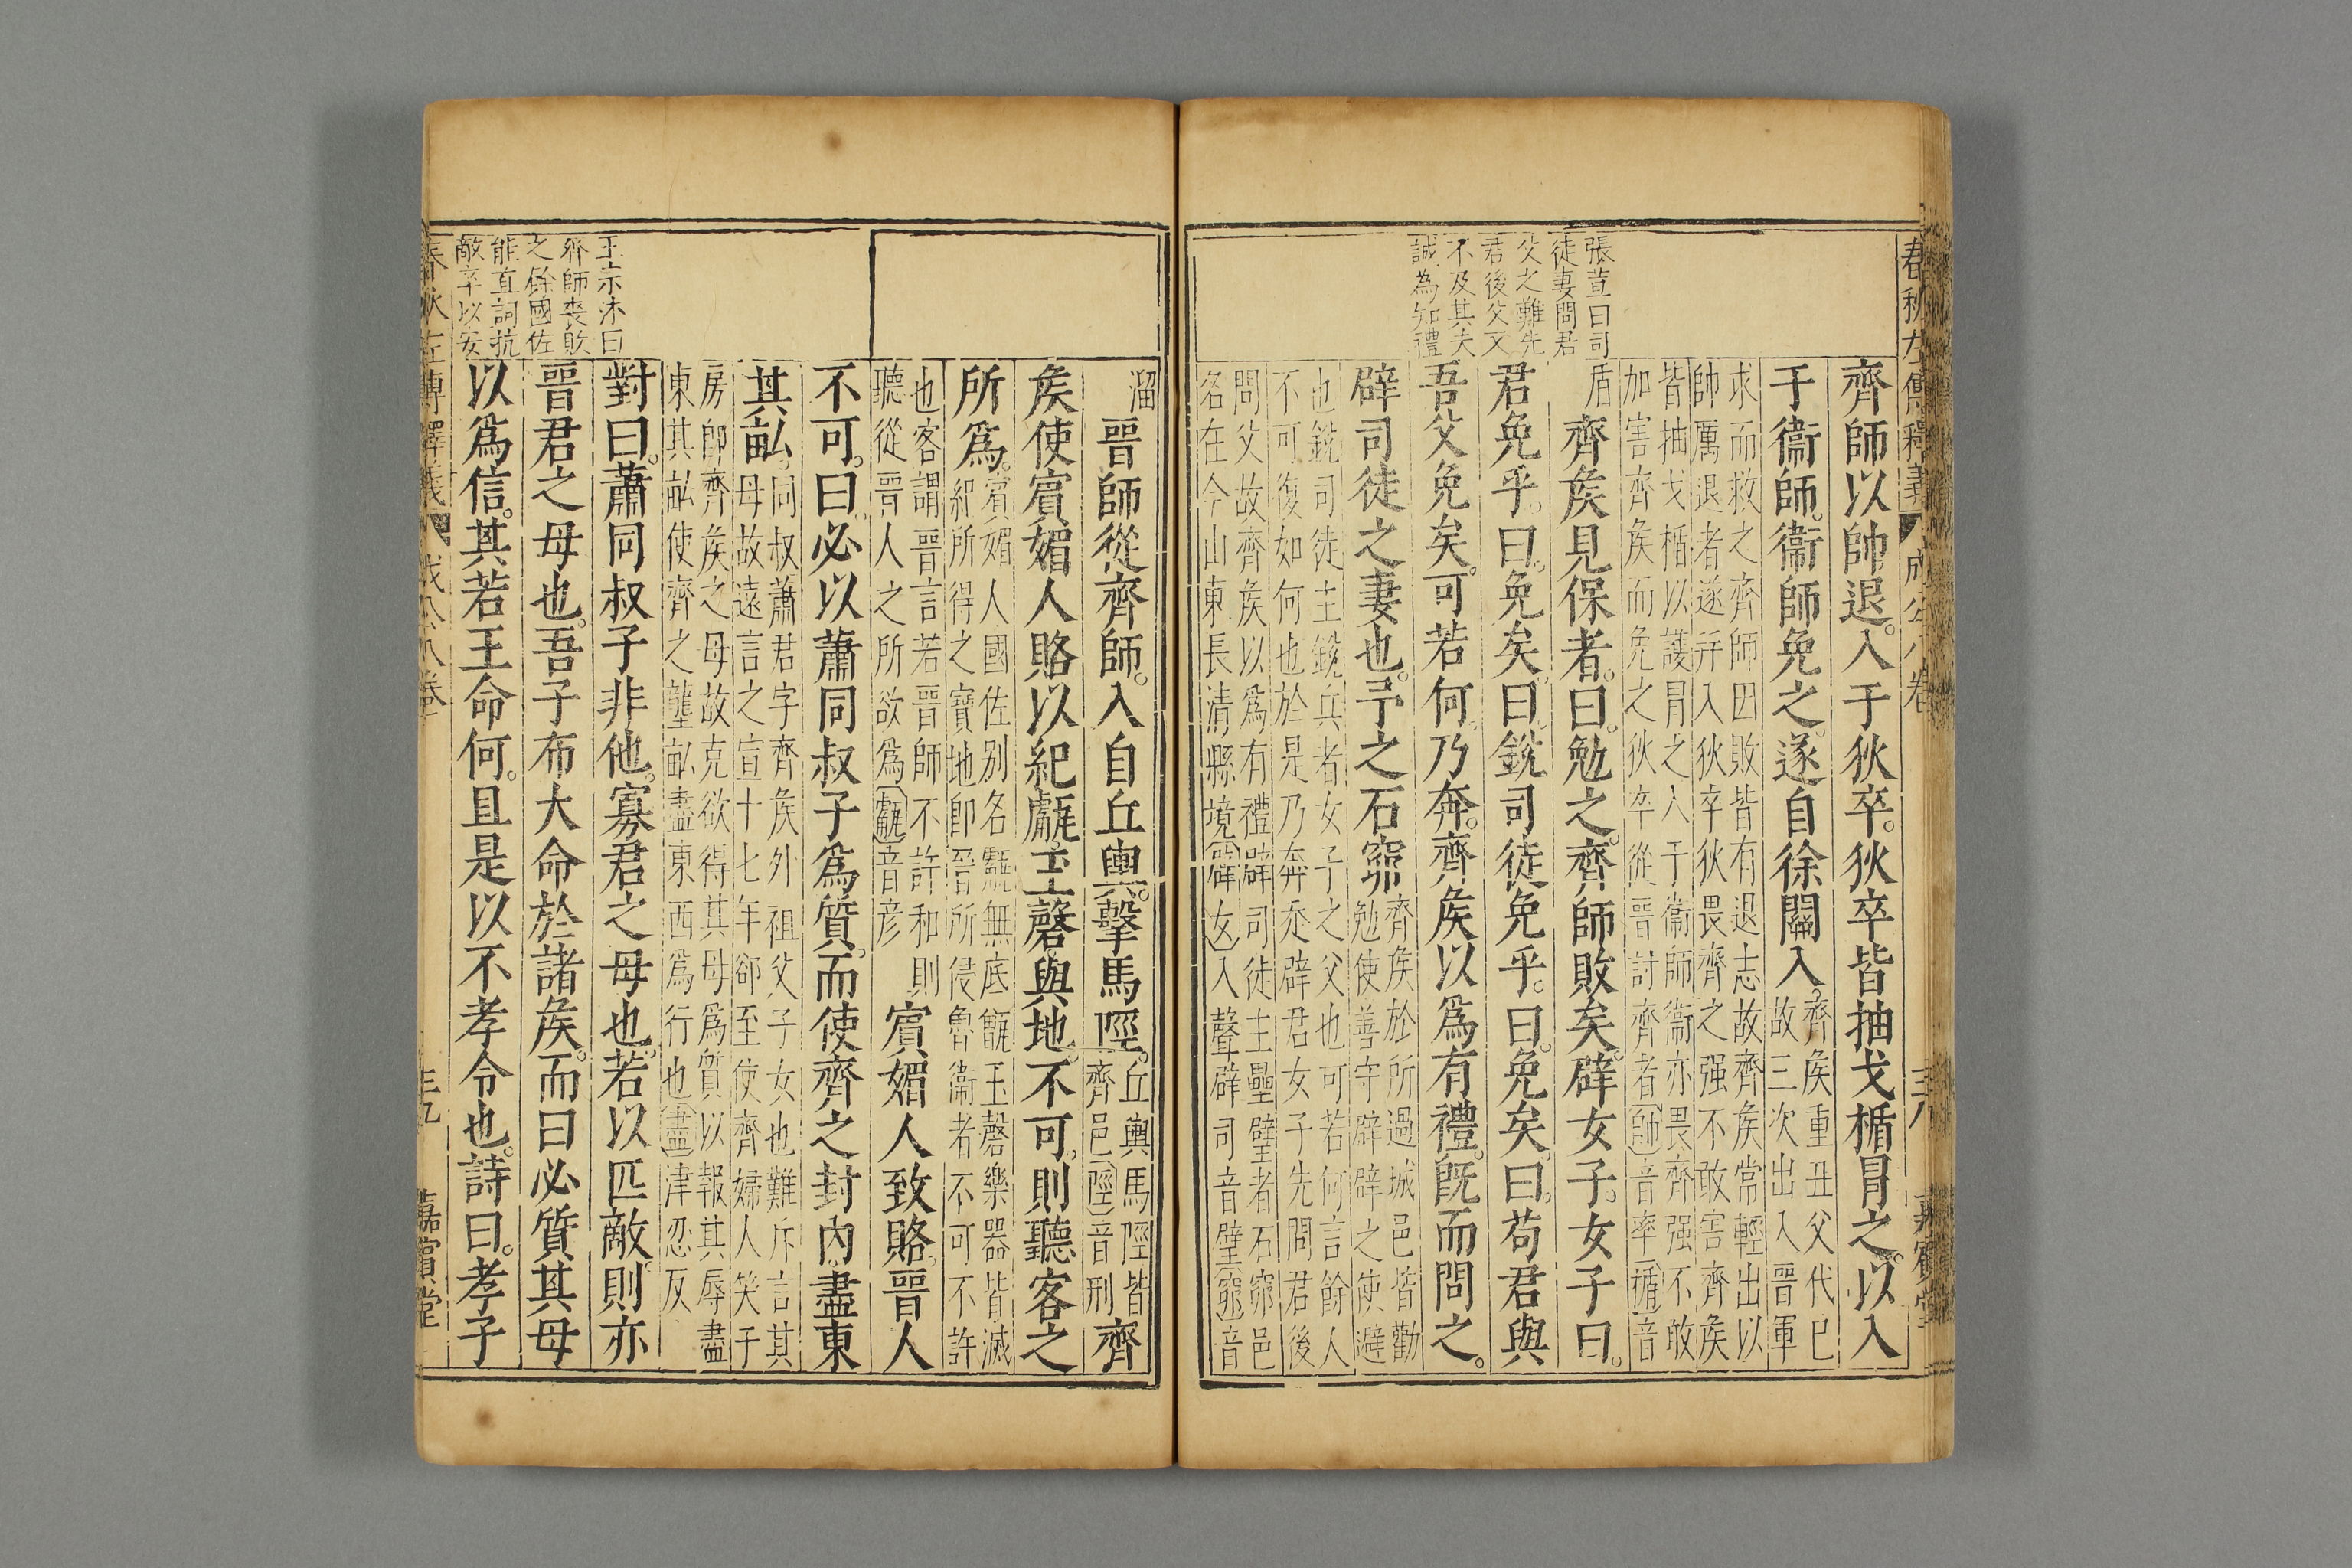 春秋左傳釋義 成公八卷 三八 嘉賓堂
張萱曰司
徒妻問君
父之難先
君後父又
不及其夫
誠為知禮
齊師以帥退入于狄卒狄卒皆抽戈楯冒之以入
于衞師衞師免之遂自徐關入
齊矦重丑父代巳
故三次出入晋軍
求而救之齊師因敗皆有退志故齊矦常輕出以
帥厲退者遂幷入狄卒狄畏齊之强不敢害齊矦
皆抽戈楯以護冐之入于衞師衞亦畏齊强不敢
加害齊矦而免之狄卒從晋討齊者帥音率楯音
盾
齊矦見保者曰勉之齊師敗矣辟女子女子曰
君免乎曰免矣曰銳司徒免乎曰免矣曰苟君與
吾父免矣可若何乃奔齊矦以爲有禮旣而問之
辟司徒之妻也予之石窌
齊矦於所過城邑皆勸
勉使善守辟辟之使避
也銳司徒主銳兵者女子之父也可若何言餘人
不可復如何也於是乃奔㤀辟君女子先問君後
問父故齊矦以爲有禮辟司徒主壘壁者石窌邑
名在今山東長清縣境辟女入聲辟司音壁窌音
溜
晋師從齊師入自丘輿擊馬陘
丘輿馬陘皆
齊邑陘音刑
齊
矦使賓媚人賂以紀甗玉磬與地不可則聽客之
所爲
賓媚人國佐别名甗無底甑玉磬樂器皆滅
紀所得之寶地卽晋所侵魯衞者不可不許
也客謂晋言若晋師不許和則
聽從晋人之所欲爲甗音彦
賓媚人致賂晋人
不可曰必以蕭同叔子爲質而使齊之封内盡東
其畝
同叔蕭君字齊矦外祖父子女也難斥言其
母故遠言之宣十七年郤至使齊婦人笑于
房卽齊矦之母故克欲得其母爲質以報其辱盡
東其畝使齊之壟畝盡東西爲行也盡津忍反
對曰蕭同叔子非他寡君之母也若以匹敵則亦
晋君之母也吾子布大命於諸矦而曰必質其母
以爲信其若王命何且是以不孝令也詩曰孝子
王宗沐曰
齊師喪敗
之餘國佐
能直詞抗
敵卒以安
春秋左傳釋義 成公八卷 三九 嘉賓堂